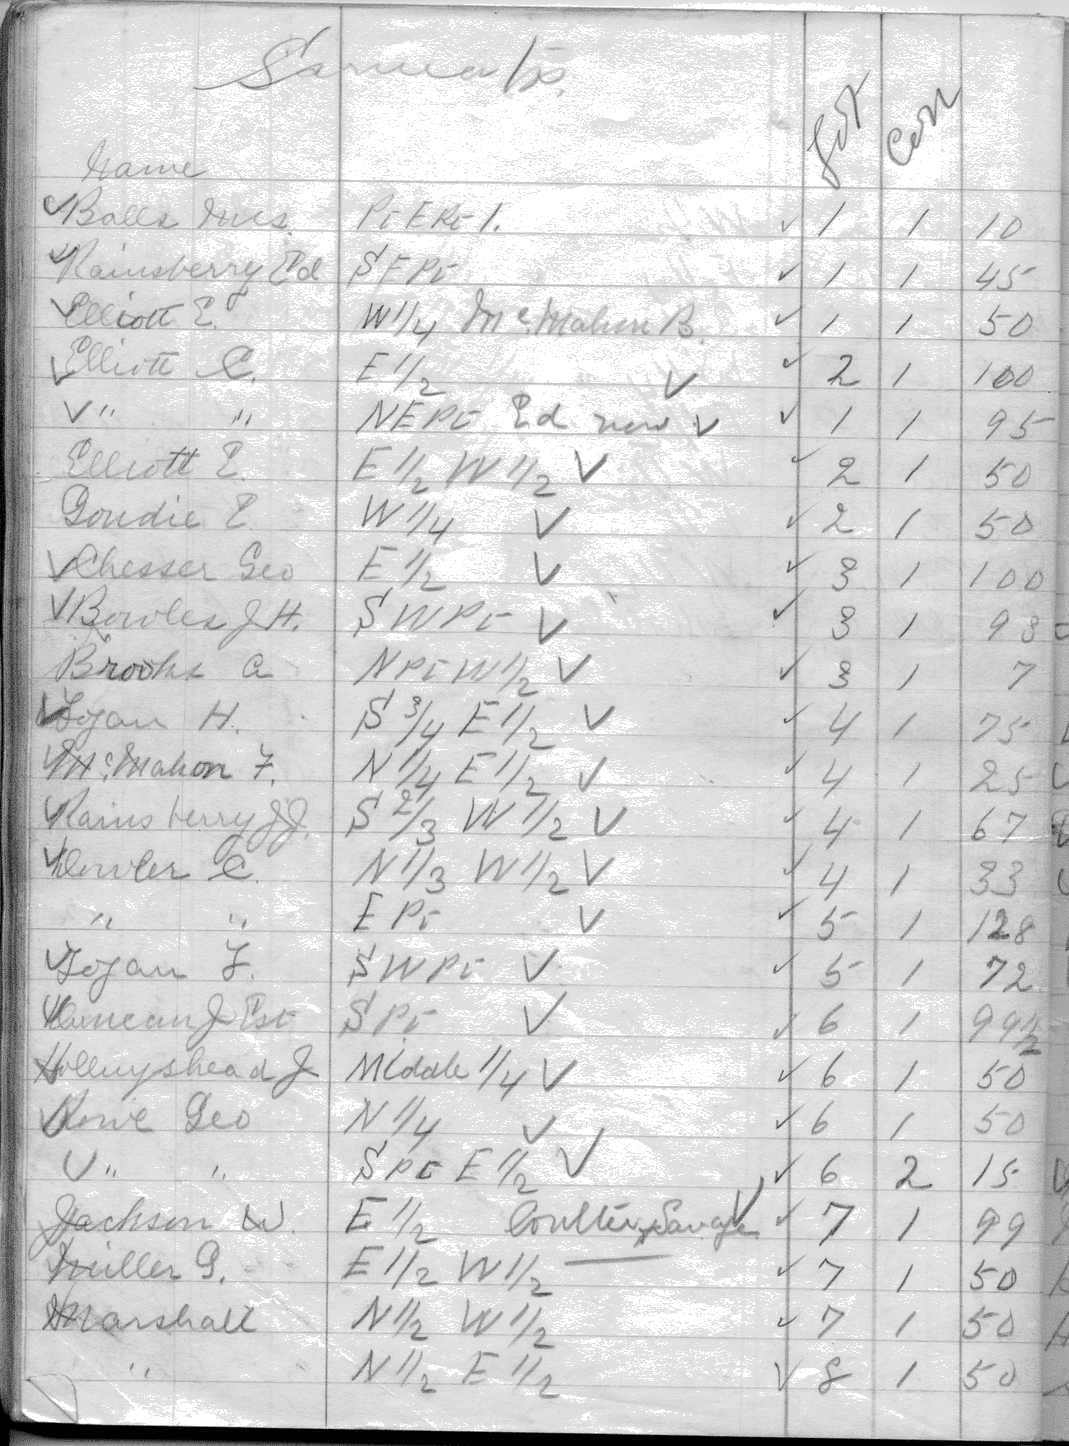 Sarnia Tp.
Name Lot Con
✓ Balls Mrs. Pt E Pt 1. ✓ 1 1 10
✓ Rainsberry Ed S E Pt ✓ 1 1 45
✓ Elliott E. W 1/4 McMahon B. ✓ 1 1 50
✓ Elliott C. E 1/2 ✓ ✓ 2 1 100
✓ " " N E Pt Ed now ✓ ✓ 1 1 95
Elliott E. E 1/2 W 1/2 ✓ ✓ 2 1 50
Goudie E. W 1/4 ✓ ✓ 2 1 50
✓ Chesser Geo E 1/2 ✓ ✓ 3 1 100
✓ Bowles J H. S W Pt ✓ ✓ 3 1 93
Brooks A N Pt W 1/2 ✓ ✓ 3 1 7
✓ Logan H. S 3/4 E 1/2 ✓ ✓ 4 1 75
✓ McMahon F. N 1/4 E 1/2 ✓ ✓ 4 1 25
✓ Rainsberry J J. S 2/3 W 1/2 ✓ ✓ 4 1 67
✓ Dowler C. N 1/3 W 1/2 ✓ ✓ 4 1 33
" " E Pt ✓ ✓ 5 1 128
✓ Logan F. S W Pt ✓ ✓ 5 1 72
✓ Duncan J Est S Pt ✓ ✓ 6 1 99 1/2
✓ Hollingshead J Middle 1/4 ✓ ✓ 6 1 50
✓ Rowe Geo N 1/4 ✓ ✓ 6 1 50
✓ " " S Pt E 1/2 ✓ ✓ 6 2 15
Jackson W. E 1/2 Coulter Savage ✓ ✓ 7 1 99
Miller G. E 1/2 W 1/2 ✓ 7 1 50
Marshall N 1/2 W 1/2 ✓ 7 1 50
" N 1/2 E 1/2 ✓ 8 1 50